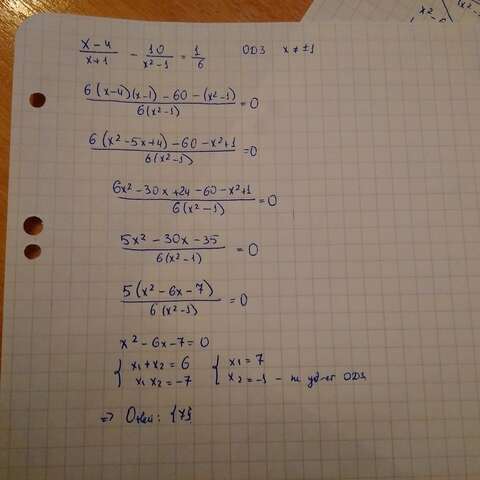 x-4/x+1 - 10/x²-1 = 1/6 ОДЗ x ≠ ±1
6(x-4)(x-1) - 60 - (x²-1)/6(x²-1) = 0
6(x²-5x+4) - 60 - x²+1/6(x²-1) = 0
6x² - 30x + 24 - 60 - x²+1/6(x²-1) = 0
5x² - 30x - 35/6(x²-1) = 0
5(x² - 6x - 7)/6(x²-1) = 0
x² - 6x - 7 = 0
{ x₁ + x₂ = 6 { x₁ = 7
x₁ x₂ = -7 x₂ = -1 - не уд-ет ОДЗ
=> Ответ: {7}